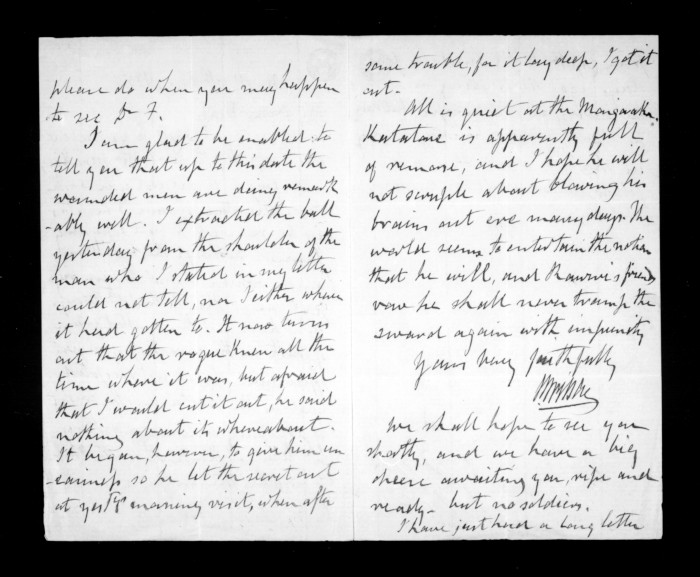 please do when you may happen
to see Dr F.
I am glad to be enabled to
tell you that up to this date the
wounded men are doing remark
-ably well. I extracted the ball
yesterday from the shoulder of the
man who I stated in my letter
could not tell, nor I either where
it had gotten to. It now turns
out that the rogue knew all the
time where it was, but afraid
that I would cut it out, he said
nothing about its whereabout.
It began, however, to give him un
-easiness so he let the secret out
at yestys morning visit, when after
some trouble, for it lay deep, I got it
out.
All is quiet at the Mangaraka.
Katatore is apparently full
of remorse, and I hope he will
not scruple about blowing his
brains out ere many days. The
world seems to entertain the notion
that he will, and Rawiri's friends
vow he shall never tramp the
sward again with impunity
Yours very faithfully
we shall hope to see you
shortly, and we have a big
cheese awaiting you, ripe and
ready - but no soldiers.
I have just had a long letter